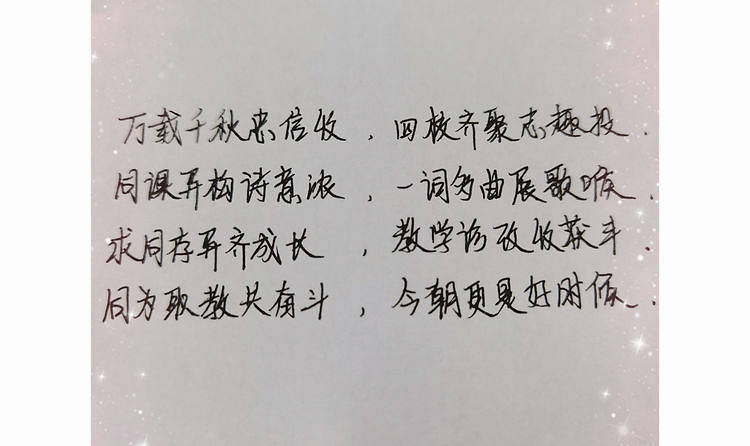 万载千秋忠信收，四校齐聚志趣投.
同课异构诗意浓，一词多曲展歌喉.
求同存异齐成长，教学诊改收获丰.
同为职教共奋斗，今朝更是好时候.